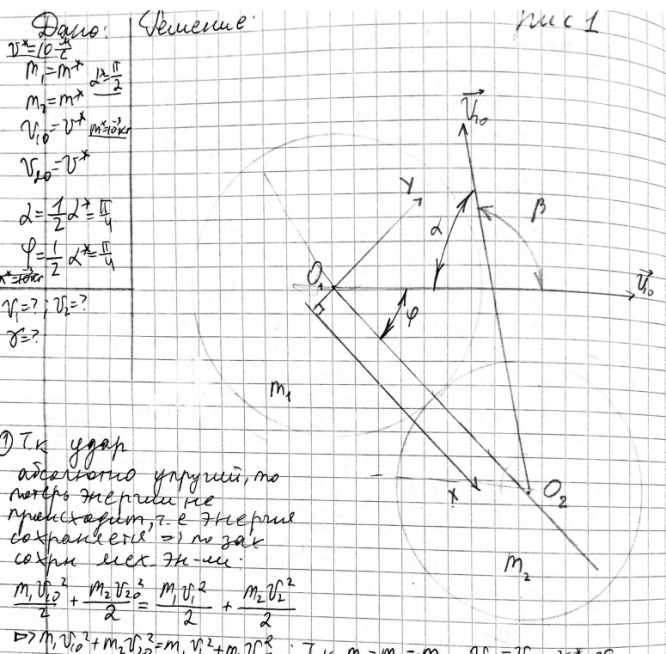 Дано:
Решение:
рис 1
V*=10 м/с
m₁=m*
α*=π/2
m₂=m*
V₁₀=V*
m*=10⁻³кг
V₂₀=V*
α=1/2 α*=π/4
φ=1/2 α*=π/4
V₁=?; V₂=?
γ=?
V₁₀
Y
α
β
O₁
V₁₀
φ
m₁
X
O₂
m₂
① Тк удар
абсолютно упругий, то
потерь энергии не
происходит, т.е энергия
сохраняется => по зак
сохрн мех. эн-ии:
m₁V₁₀²/2 + m₂V₂₀²/2 = m₁V₁²/2 + m₂V₂²/2
=> m₁V₁₀²+m₂V₂₀²=m₁V₁²+m₂V₂²